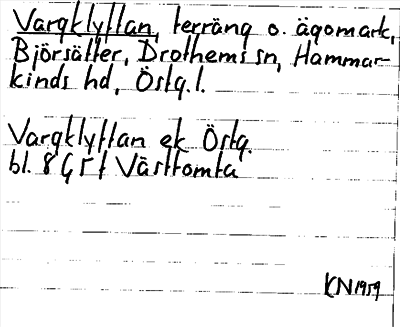 Vargklyftan, terräng o. ägomark,
Björsäter, Drothems sn, Hammar-
kinds hd, Östg. l.
Vargklyftan ek Östg.
bl. 8 G 5 f Västtomta
KN 1959